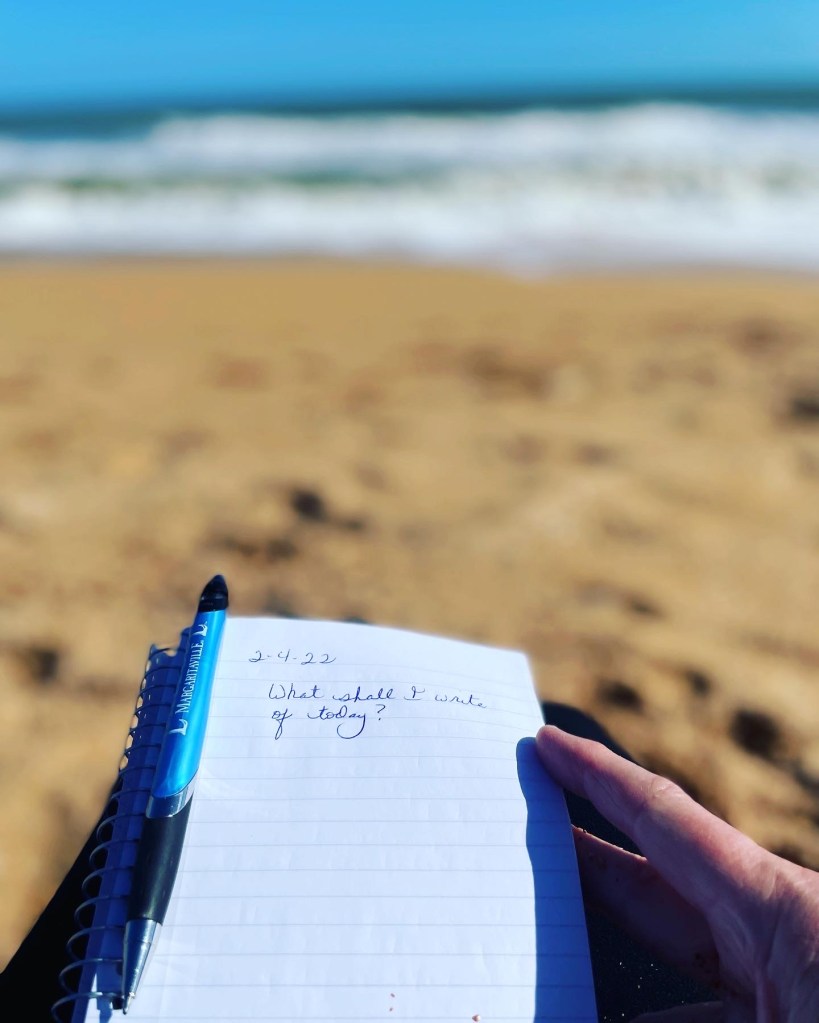 MARGARITAVILLE
2-4-22
What shall I write
of today?